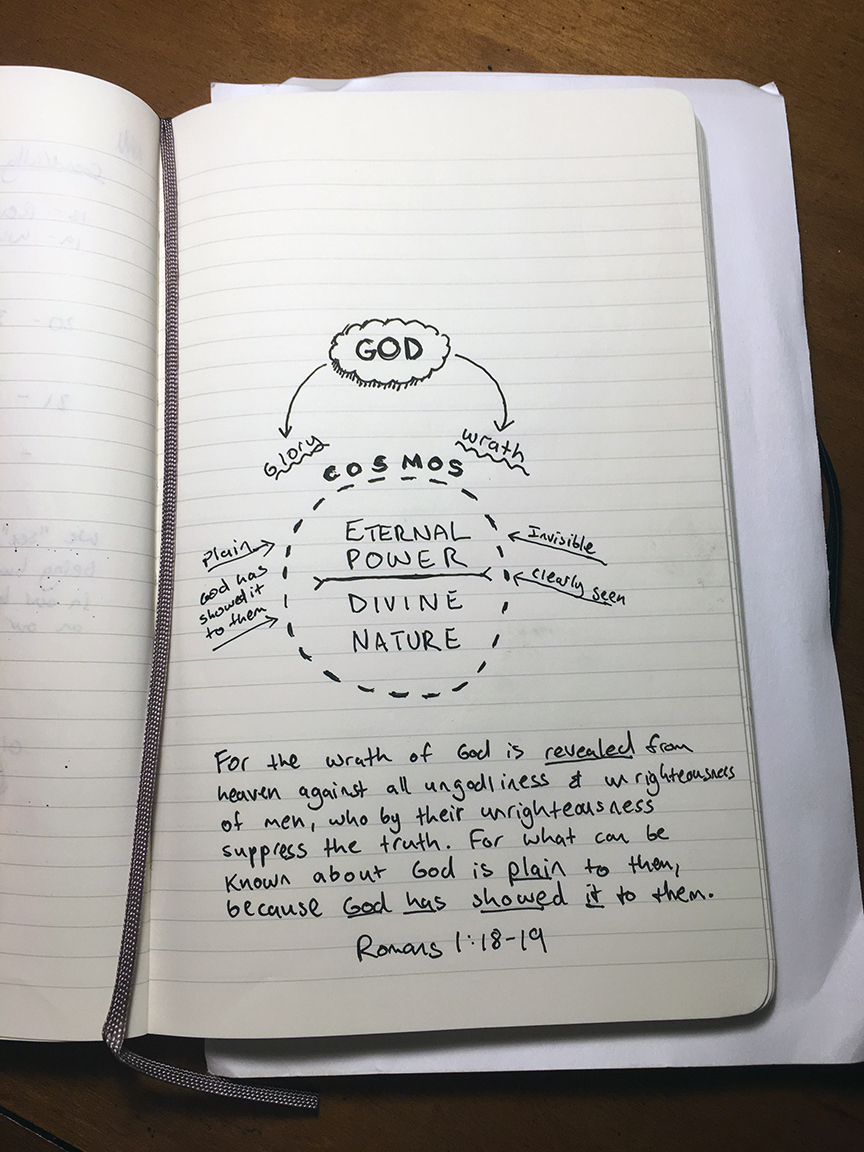 GOD
Glory
wrath
COSMOS
Plain
God has
showed it
to them
ETERNAL
POWER
DIVINE
NATURE
Invisible
clearly seen
For the wrath of God is revealed from
heaven against all ungodliness & unrighteousness
of men, who by their unrighteousness
suppress the truth. For what can be
known about God is plain to them,
because God has showed it to them.
Romans 1:18-19